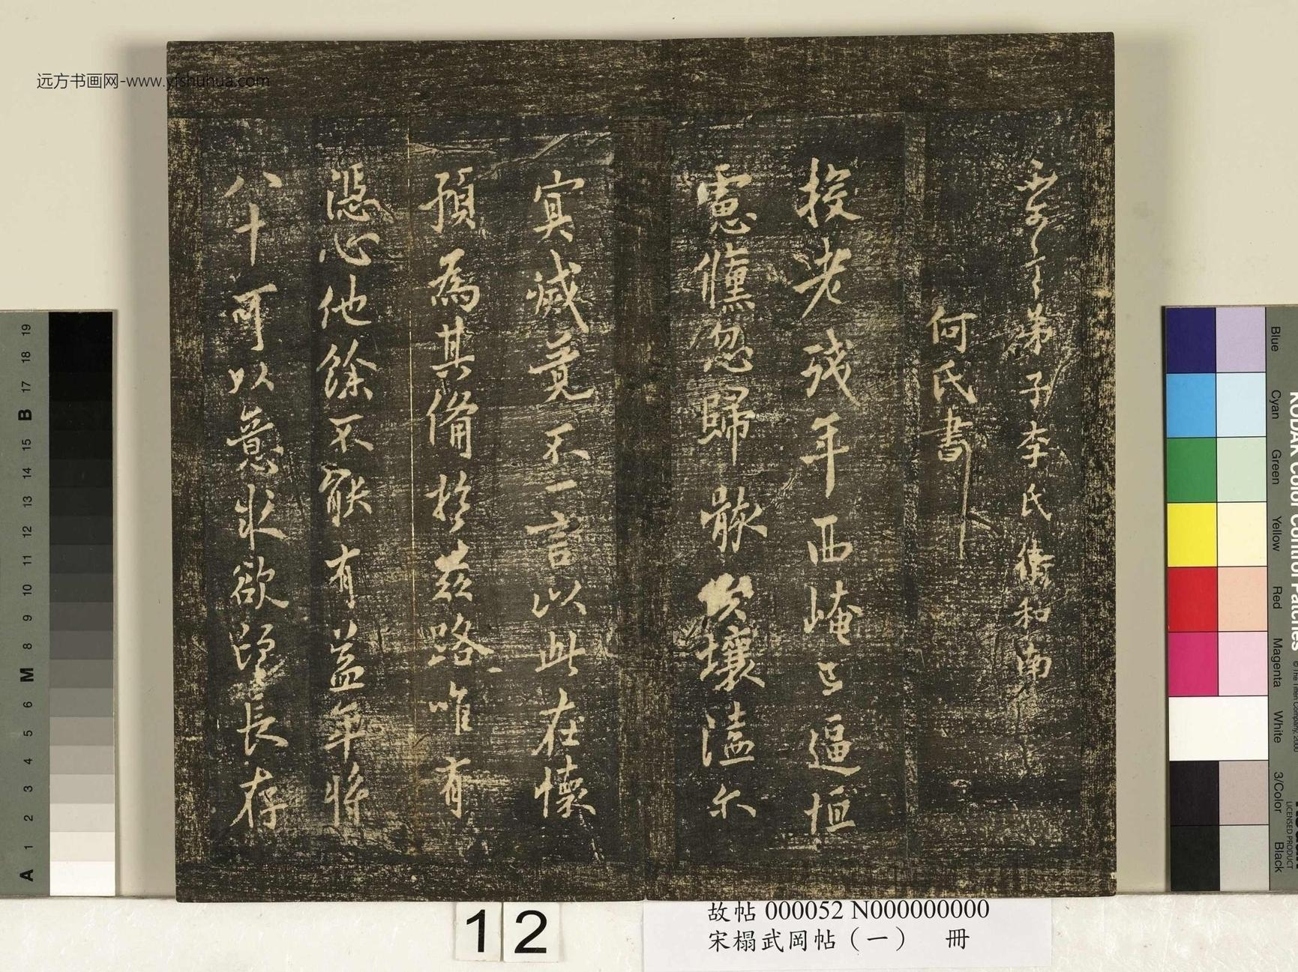 弟子李氏衛和南
何氏書
投老殘年西崦已逼恒
慮儻忽歸骸壤溘尔
寘滅竟不一言以此在懷
預為其備於茲路唯有
憑心他餘不能有益年將
八十可以意求欲長存
远方书画网-www.yfshuhua.com
12
故帖 000052 N000000000
宋榻武岡帖（一） 冊
KODAK Color Control Patches
Blue
Cyan
Green
Yellow
Red
Magenta
White
3/Color
Black
A 1 2 3 4 5 6 M 8 9 10 11 12 13 14 15 B 17 18 19